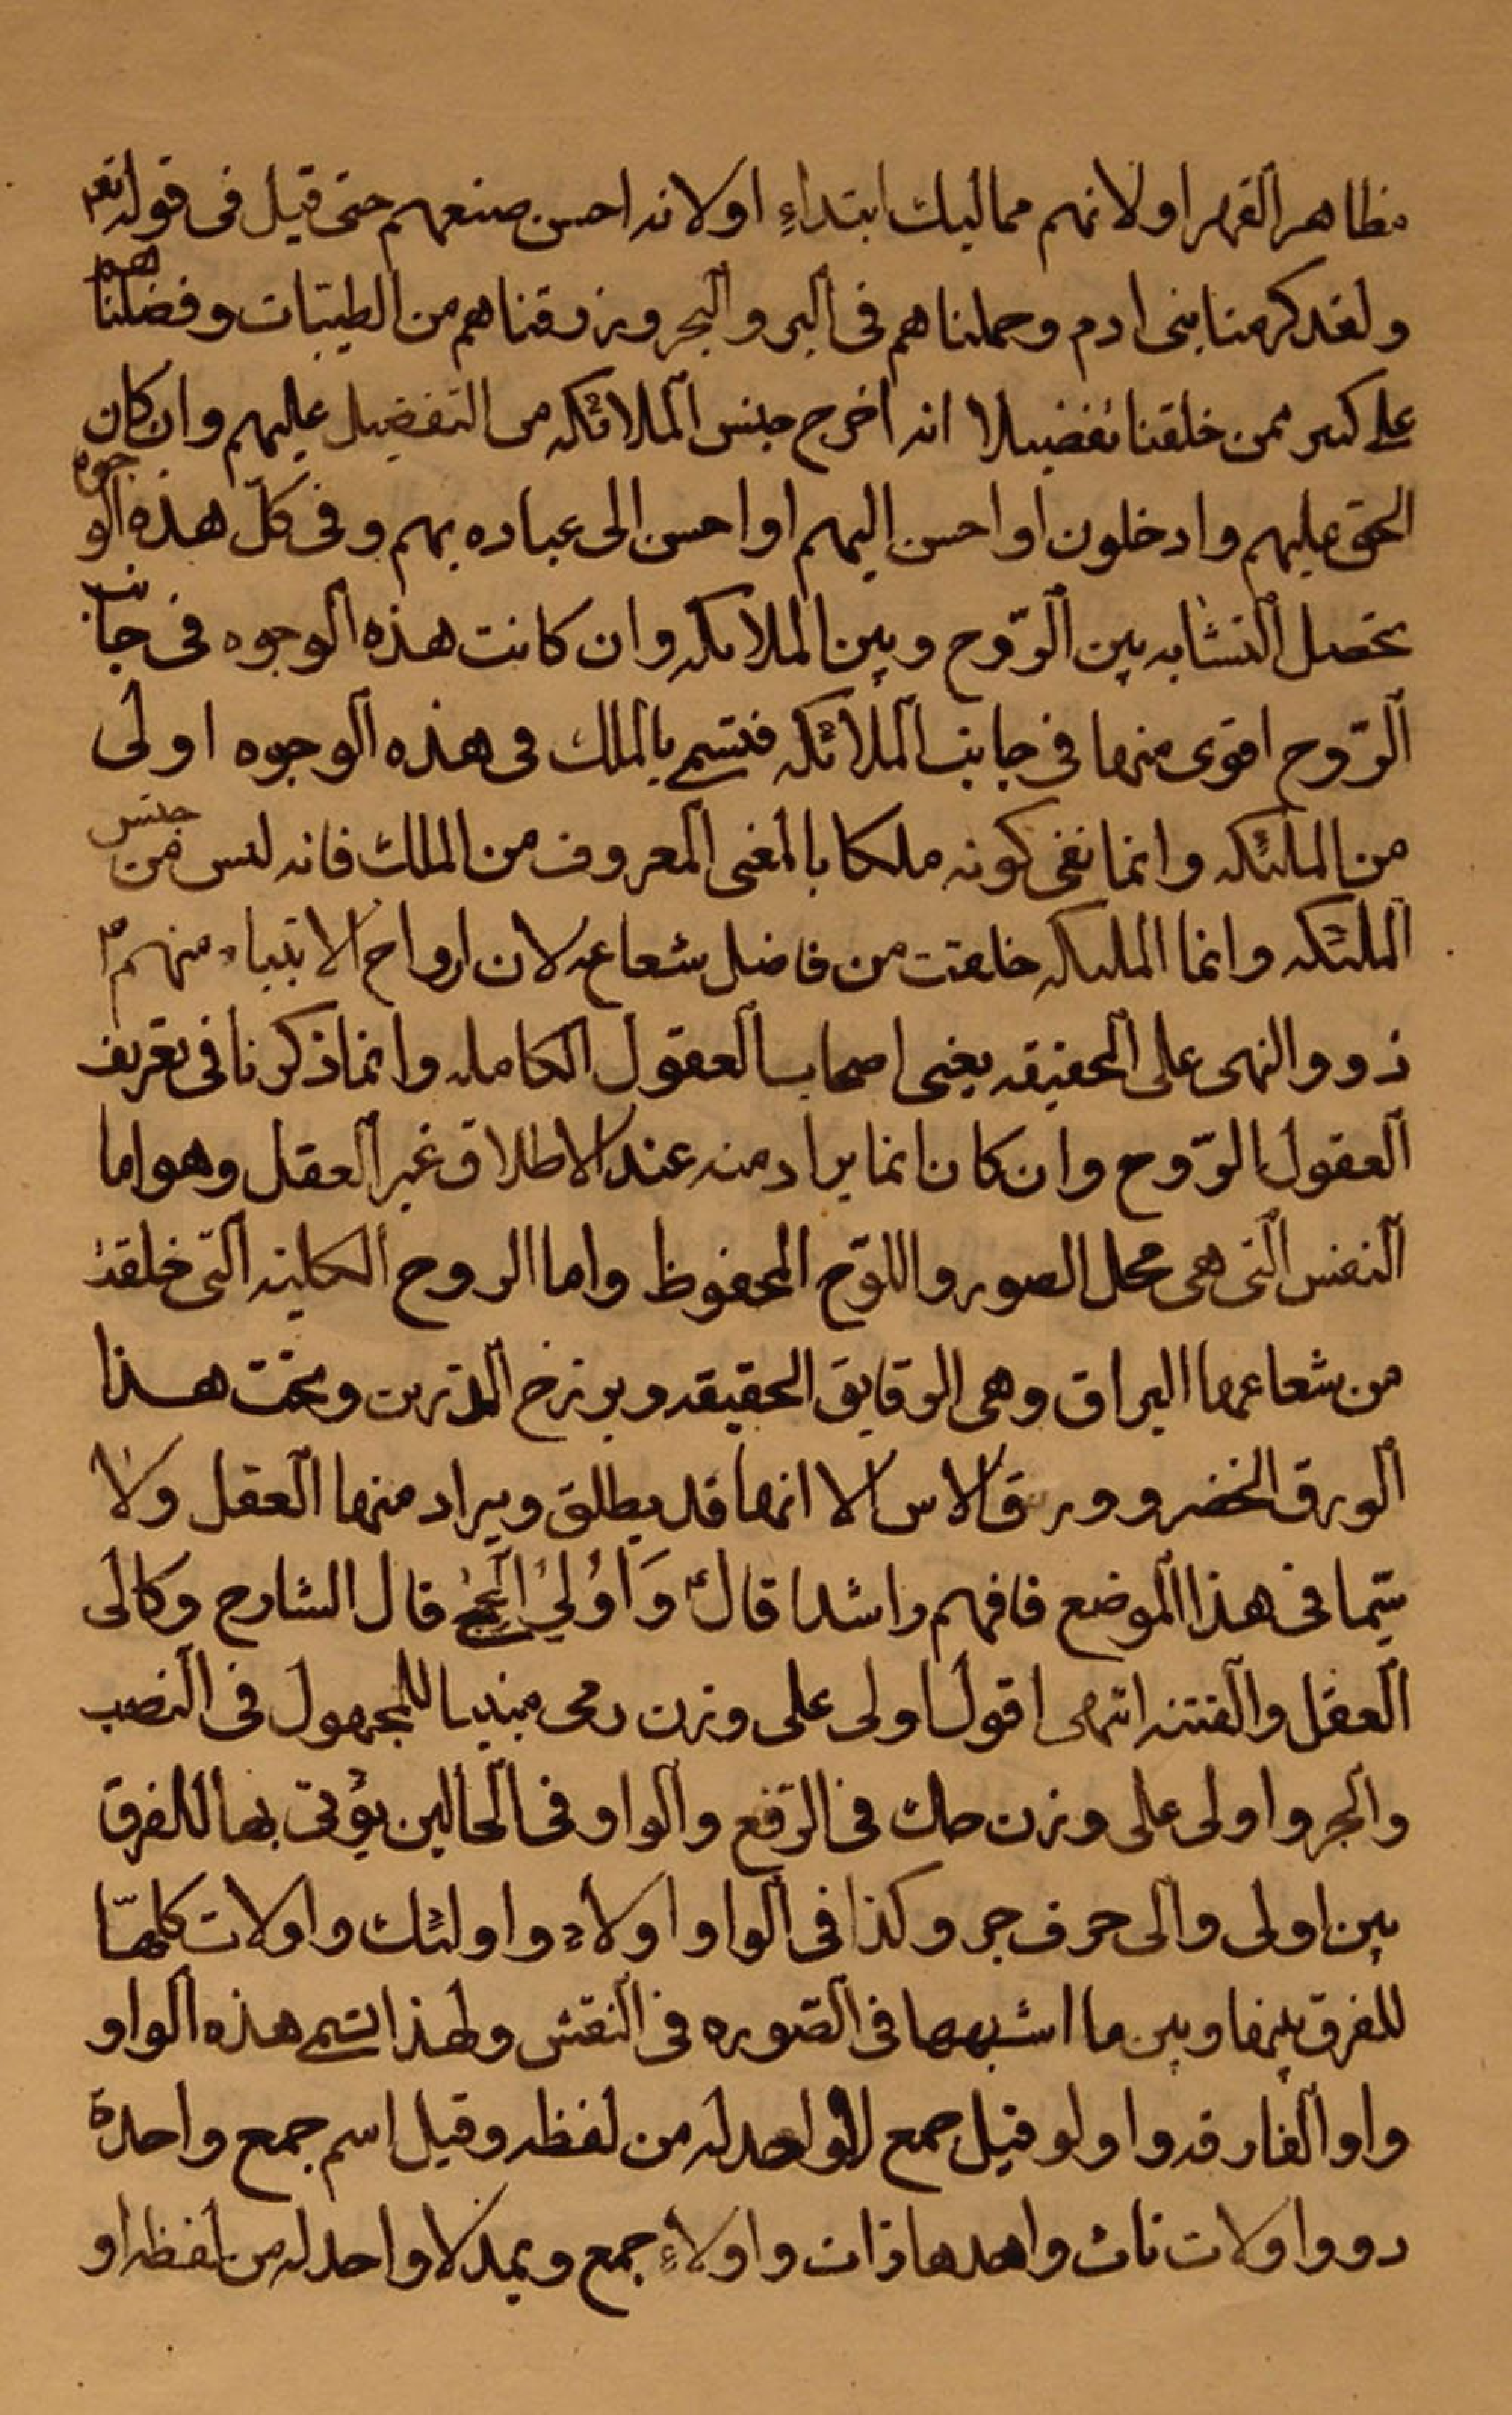 مظاهر القهر او لانهم مماليك ابتداءِ او لانه احسن صنعهم حتى قيل فى قوله تعم
ولقد كرمنا بنى ادم وحملناهم فى البر والبحر ورزقناهم من الطيّبات وفضلناهم
على كثير ممن خلقنا تفضيلا انه اخرج جنس الملائكه من التفضيل عليهم وان كان
الحق عليهم وادخلون او احسن اليهم او احسن الى عباده بهم وفى كلّ هذه الوجوه
تحصل التشابه بين الرّوح وبين الملائكه وان كانت هذه الوجوه فى جانب
الرّوح اقوى منها فى جانب الملائكه فتسمى بالملك فى هذه الوجوه اولى
من الملئكه وانما نفى كونه ملكا بالمغنى المعروف من الملك فانه ليس من جنس
الملئكه وانما الملئكه خلقت من فاضل شعاعه لان ارواح الانبياء منهم م
ذووا النهى على الحقيقه يعنى اصحاب العقول الكامله وانما ذكرنا فى تعريف
العقول بالرّوح وان كان انما يراد منه عند الاطلاق غير العقل وهو اما
النفس التى هى محل الصور واللوّح المحفوظ واما الروح الكليّه التى خلقت
من شعاعها البراق وهى الرقايق الحقيقه وبرزخ الذرين وتحت هذا
الورق الخضر وورق الاس الا انها قد يطلق ويراد منها العقل ولا
سيّما فى هذا الموضع فافهم راشدا قالء وَاُولِيُ الحِجُى قال الشارح وكالى
العقل والفتنه انتهى اقول اولى على وزن رمى مبنيا للمجهول فى النصب
والجر واولى على وزن صك فى الرّفع والواو فى الحالين يؤتى بها للفرق
بين اولى والى حرف جر وكذا فى الواو اولاء واولئك واولات كلّها
للفرق بينها وبين ما اشبهها فى الصّوره فى النقش ولهذا تسمى هذه الواو
واو الفارقه واولو قيل جمع لا واحد له من لفظه وقيل اسم جمع واحدة
ذو واولات ناث واحدها ذات واولاءِ جمع ويمد لا واحد له من لفظه او